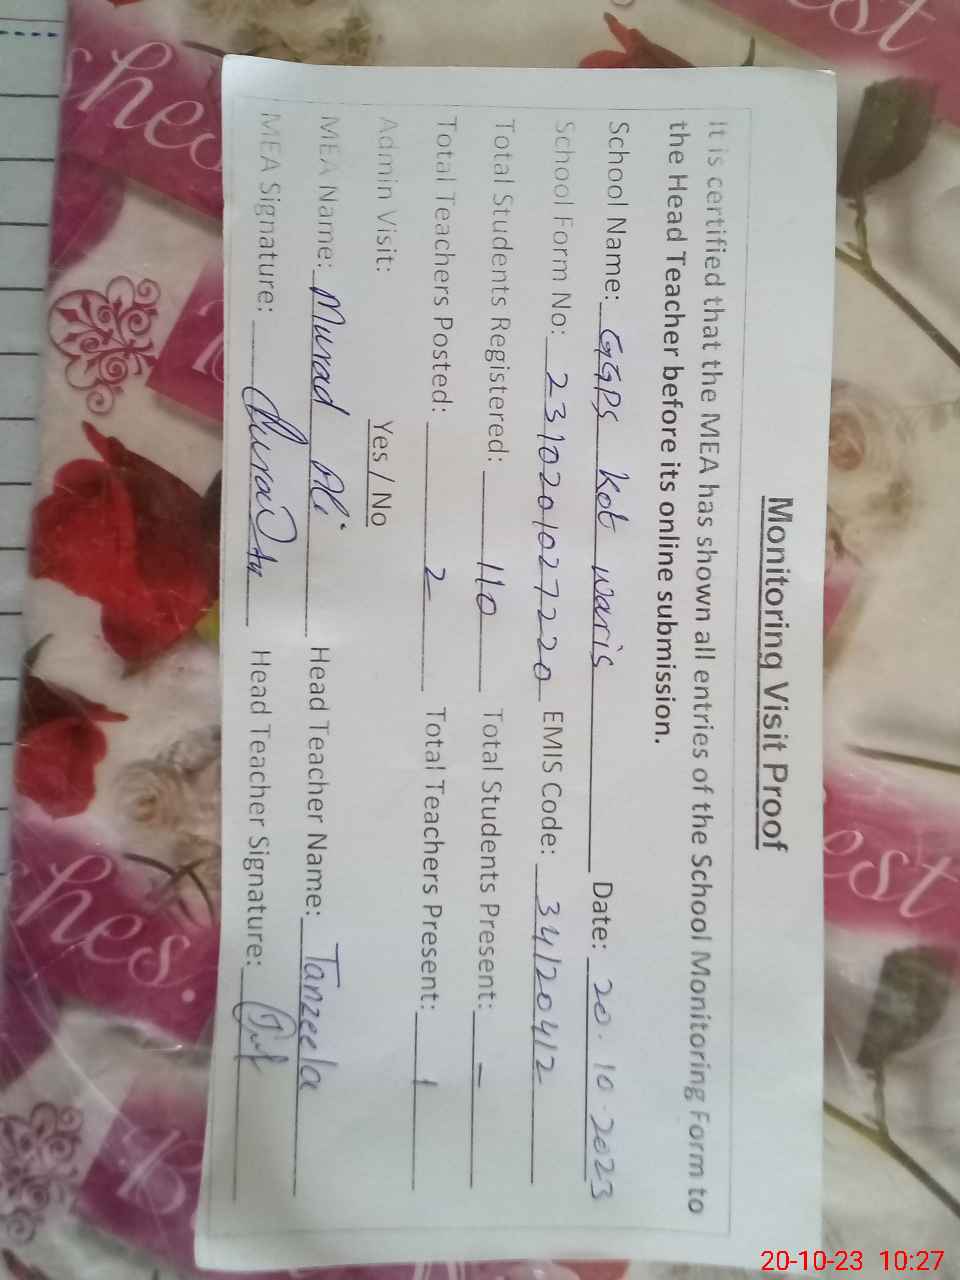 Monitoring Visit Proof
It is certified that the MEA has shown all entries of the School Monitoring Form to
the Head Teacher before its online submission.
School Name: GGPS Kot waris Date: 20.10.2023
School Form No: 2310201027220 EMIS Code: 34120412
Total Students Registered: 110 Total Students Present: –
Total Teachers Posted: 2 Total Teachers Present: 1
Admin Visit: Yes / No
MEA Name: Murad Ali Head Teacher Name: Tanzeela
MEA Signature: Head Teacher Signature:
hes.
est
hes.
20-10-23 10:27